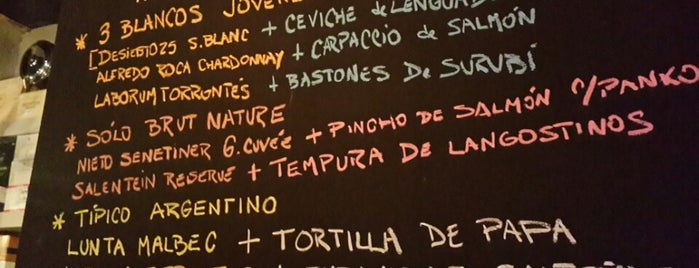 * 3 BLANCOS JOVENE
[DESIERTO 25 S.BLANC + CEVICHE de LENGUAD
ALFREDO ROCA CHARDONNAY + CARPACCIO de SALMÓN
LABORUM TORRONTÉS + BASTONES DE SURUBÍ
* SÓLO BRUT NATURE
NIETO SENETINER G. CUVÉE + PINCHO DE SALMÓN c/PANKO
SALENTEIN RESERVE + TEMPURA DE LANGOSTINOS
* TÍPICO ARGENTINO
LUNTA MALBEC + TORTILLA DE PAPA